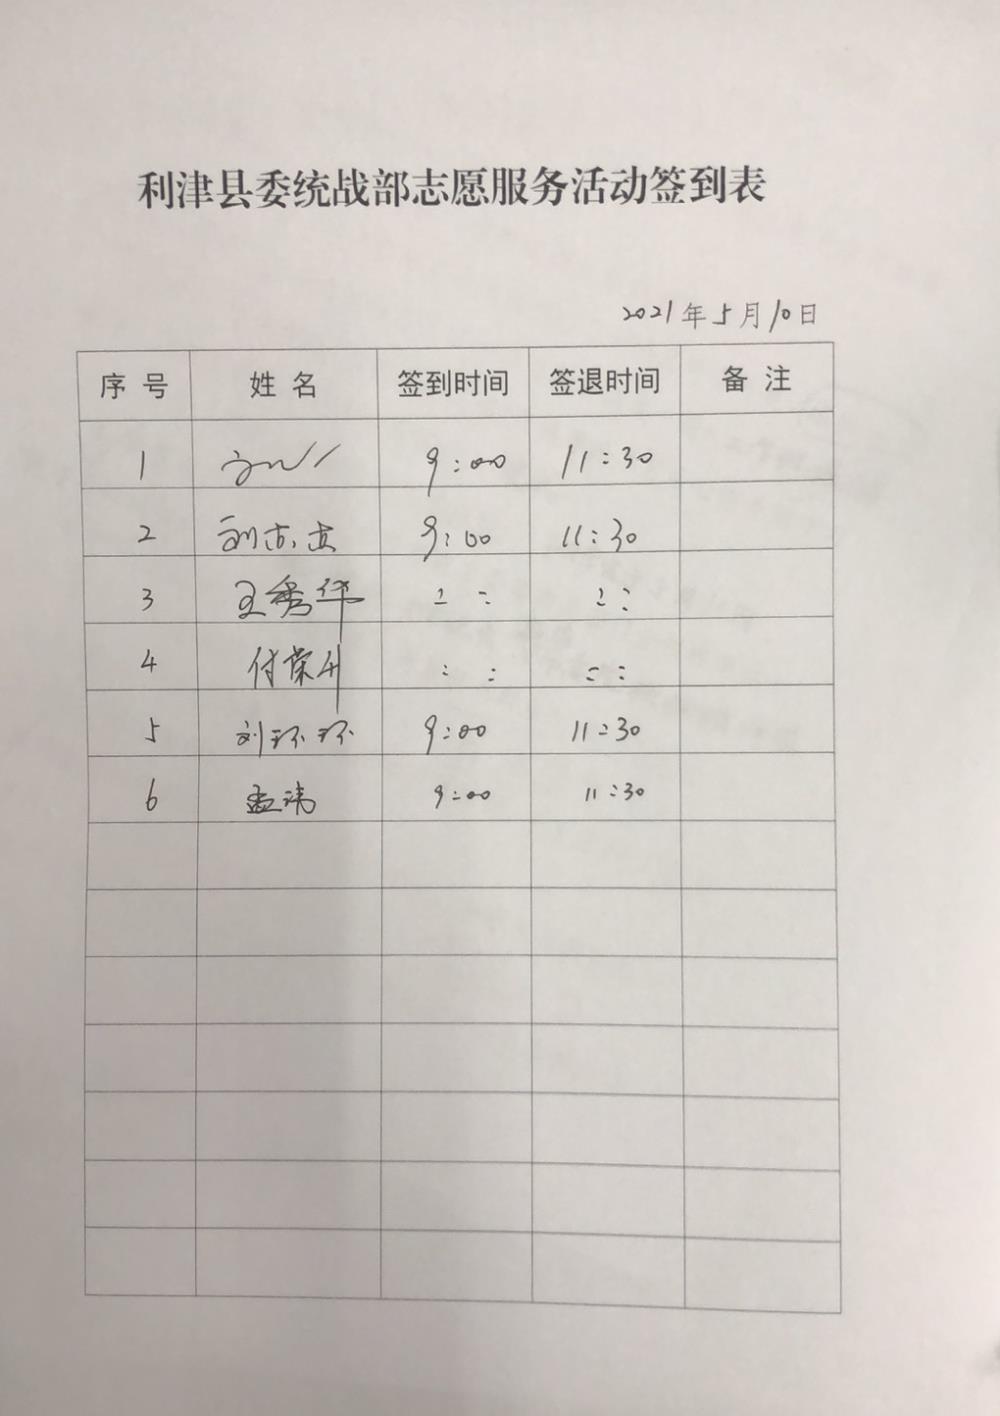 利津县委统战部志愿服务活动签到表
2021年5月10日
序号 姓名 签到时间 签退时间 备注
1 9:00 11:30
2 刘 9:00 11:30
3 王秀华 : : : :
4 付荣升 : : : :
5 刘环环 9:00 11:30
6 孟 9:00 11:30